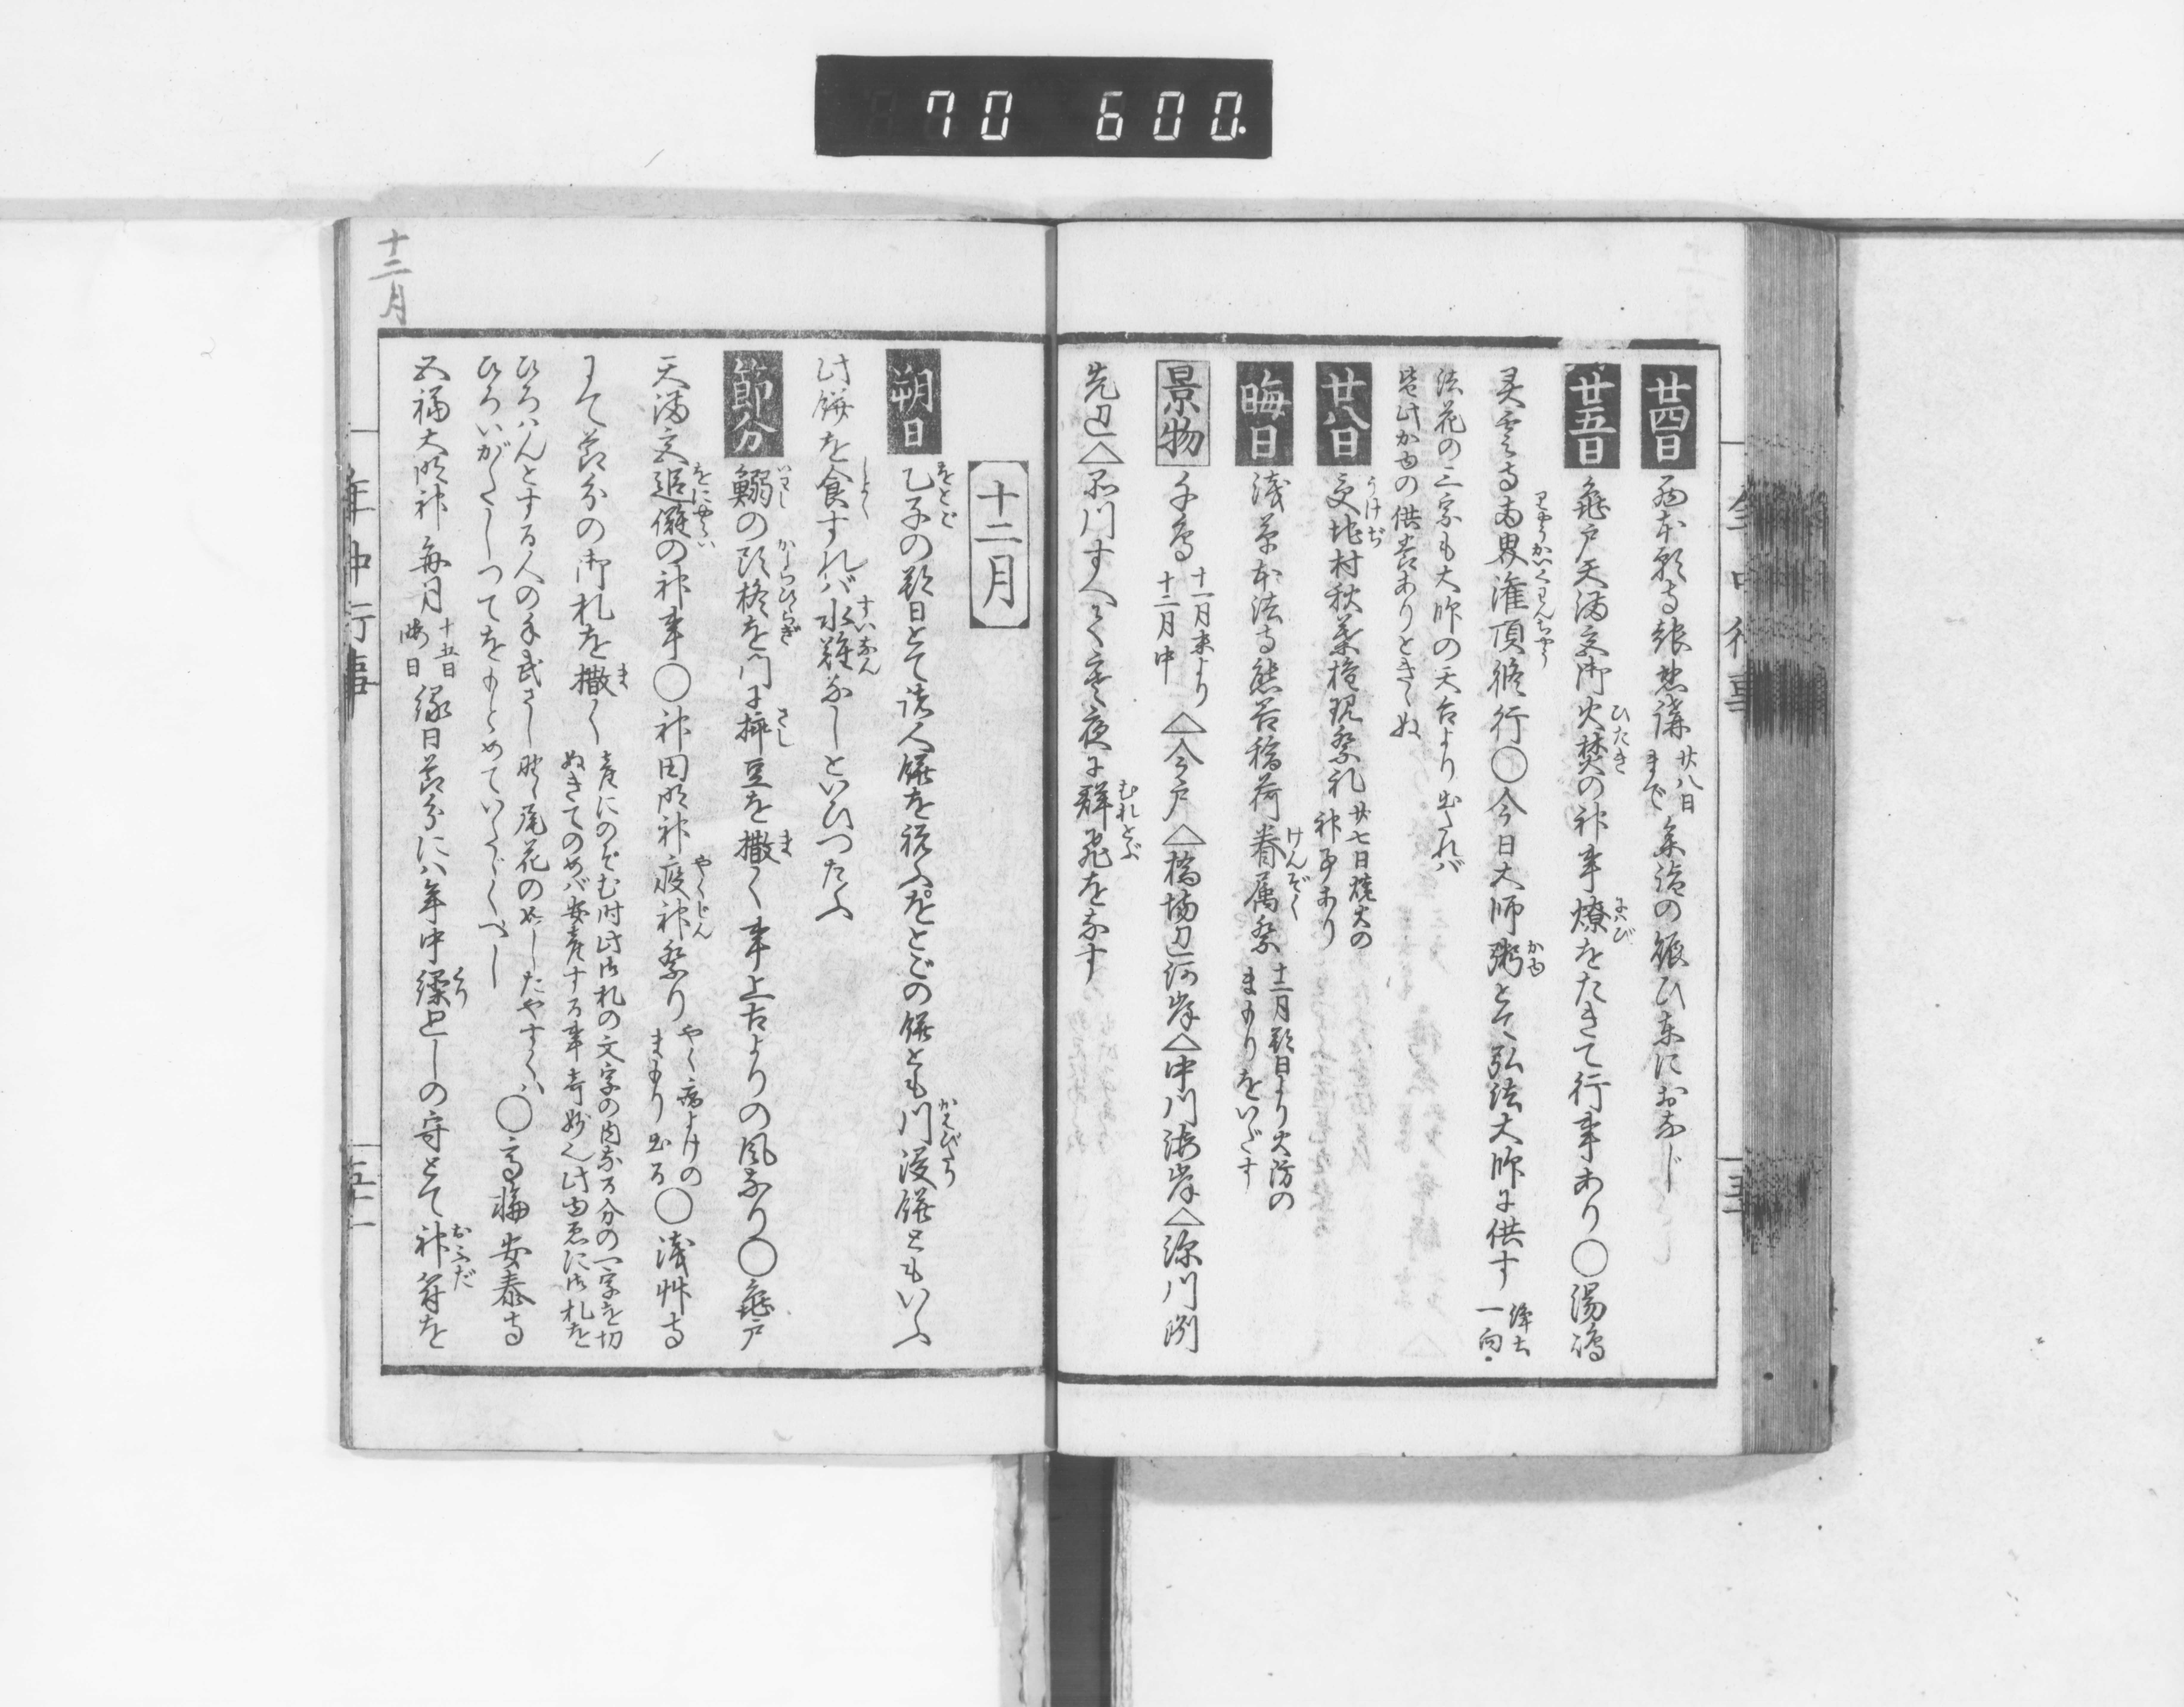 70 600.
廿四日 西本願寺報恩講 廿八日まで 参詣の賑ひ東におなじ
廿五日 亀戸天満宮御火焚の神事燎をたきて行事あり〇湯嶋
霊雲寺両界潅頂修行〇今日大師粥とて弘法大師に供す 浄土一向・
法花の三宗も大師の天台より出たれバ
皆此かゆの供養ありときゝぬ
廿八日 受地村秋葉権現祭礼 廿七日猿火の神事あり
晦日 浅草本法寺熊谷稲荷眷属祭 十二月朔日より火防のまもりをいだす
景物 千鳥 十一月末より十二月中 △今戸△橋場辺河岸△中川海岸△深川洲
先辺△品川すべて寒夜に群飛をなす
十二月
十二月
朔日 乙子の朔日とて諸人餅を祝ふをとごの餅とも川浸餅ともいふ
此餅を食すれバ水難なしといひつたふ
節分 鰯の頭柊を門に挿豆を撒く事上古よりの風なり〇亀戸
天満宮追儺の神事〇神田明神疫神祭り やく病よけのまもり出る 〇浅艸寺
にて節分の御札を撒く 産にのぞむ時此御札の文字の内なる分の一字を切
ぬきてのめバ安産する事奇妙也此ゆゑに御札を
ひろハんとする人の手武さし野ゝ尾花の如したやすくハ
ひろいがたしつてをもとめていたゞくべし
〇高輪安泰寺
五福大明神 毎月十五日晦日 縁日節分にハ年中繰としの守とて神符を
年中行事
五十一